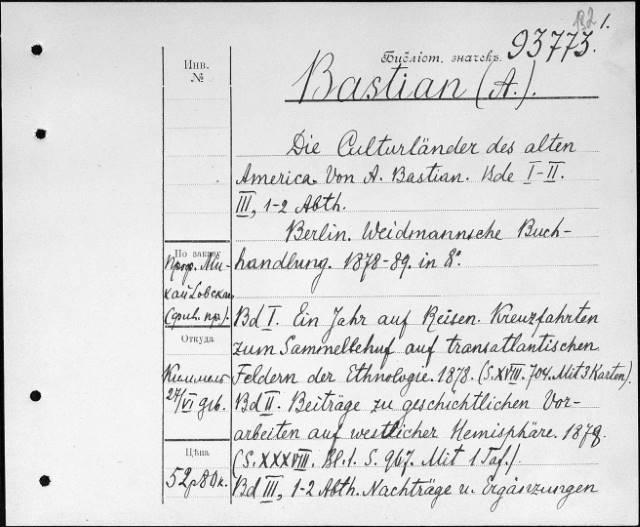 1.
Библіот. значекъ 93773.
Bastian (A.).
Die Culturländer des alten
America. Von A. Bastian. Bde I-II.
III, 1-2 Abth.
Berlin. Weidmannsche Buch-
handlung. 1878-89. in 8°.
Bd I. Ein Jahr auf Reisen. Kreuzfahrten
zum Sammelbehuf auf transatlantischen
Feldern der Ethnologie. 1878. (S. XVIII. 704. Mit 3 Karten).
Bd II. Beiträge zu geschichtlichen Vor-
arbeiten auf westlicher Hemisphäre. 1878.
(S. XXXVIII. Bl. 1. S. 967. Mit 1 Taf.).
Bd III, 1-2 Abth. Nachträge u. Ergänzungen
Инв.
№
По заказу
проф. Ми-
хайловскаго
(фил. пр.).
Откуда
Киммель
27/VI
Цѣна
52 р 80 к.